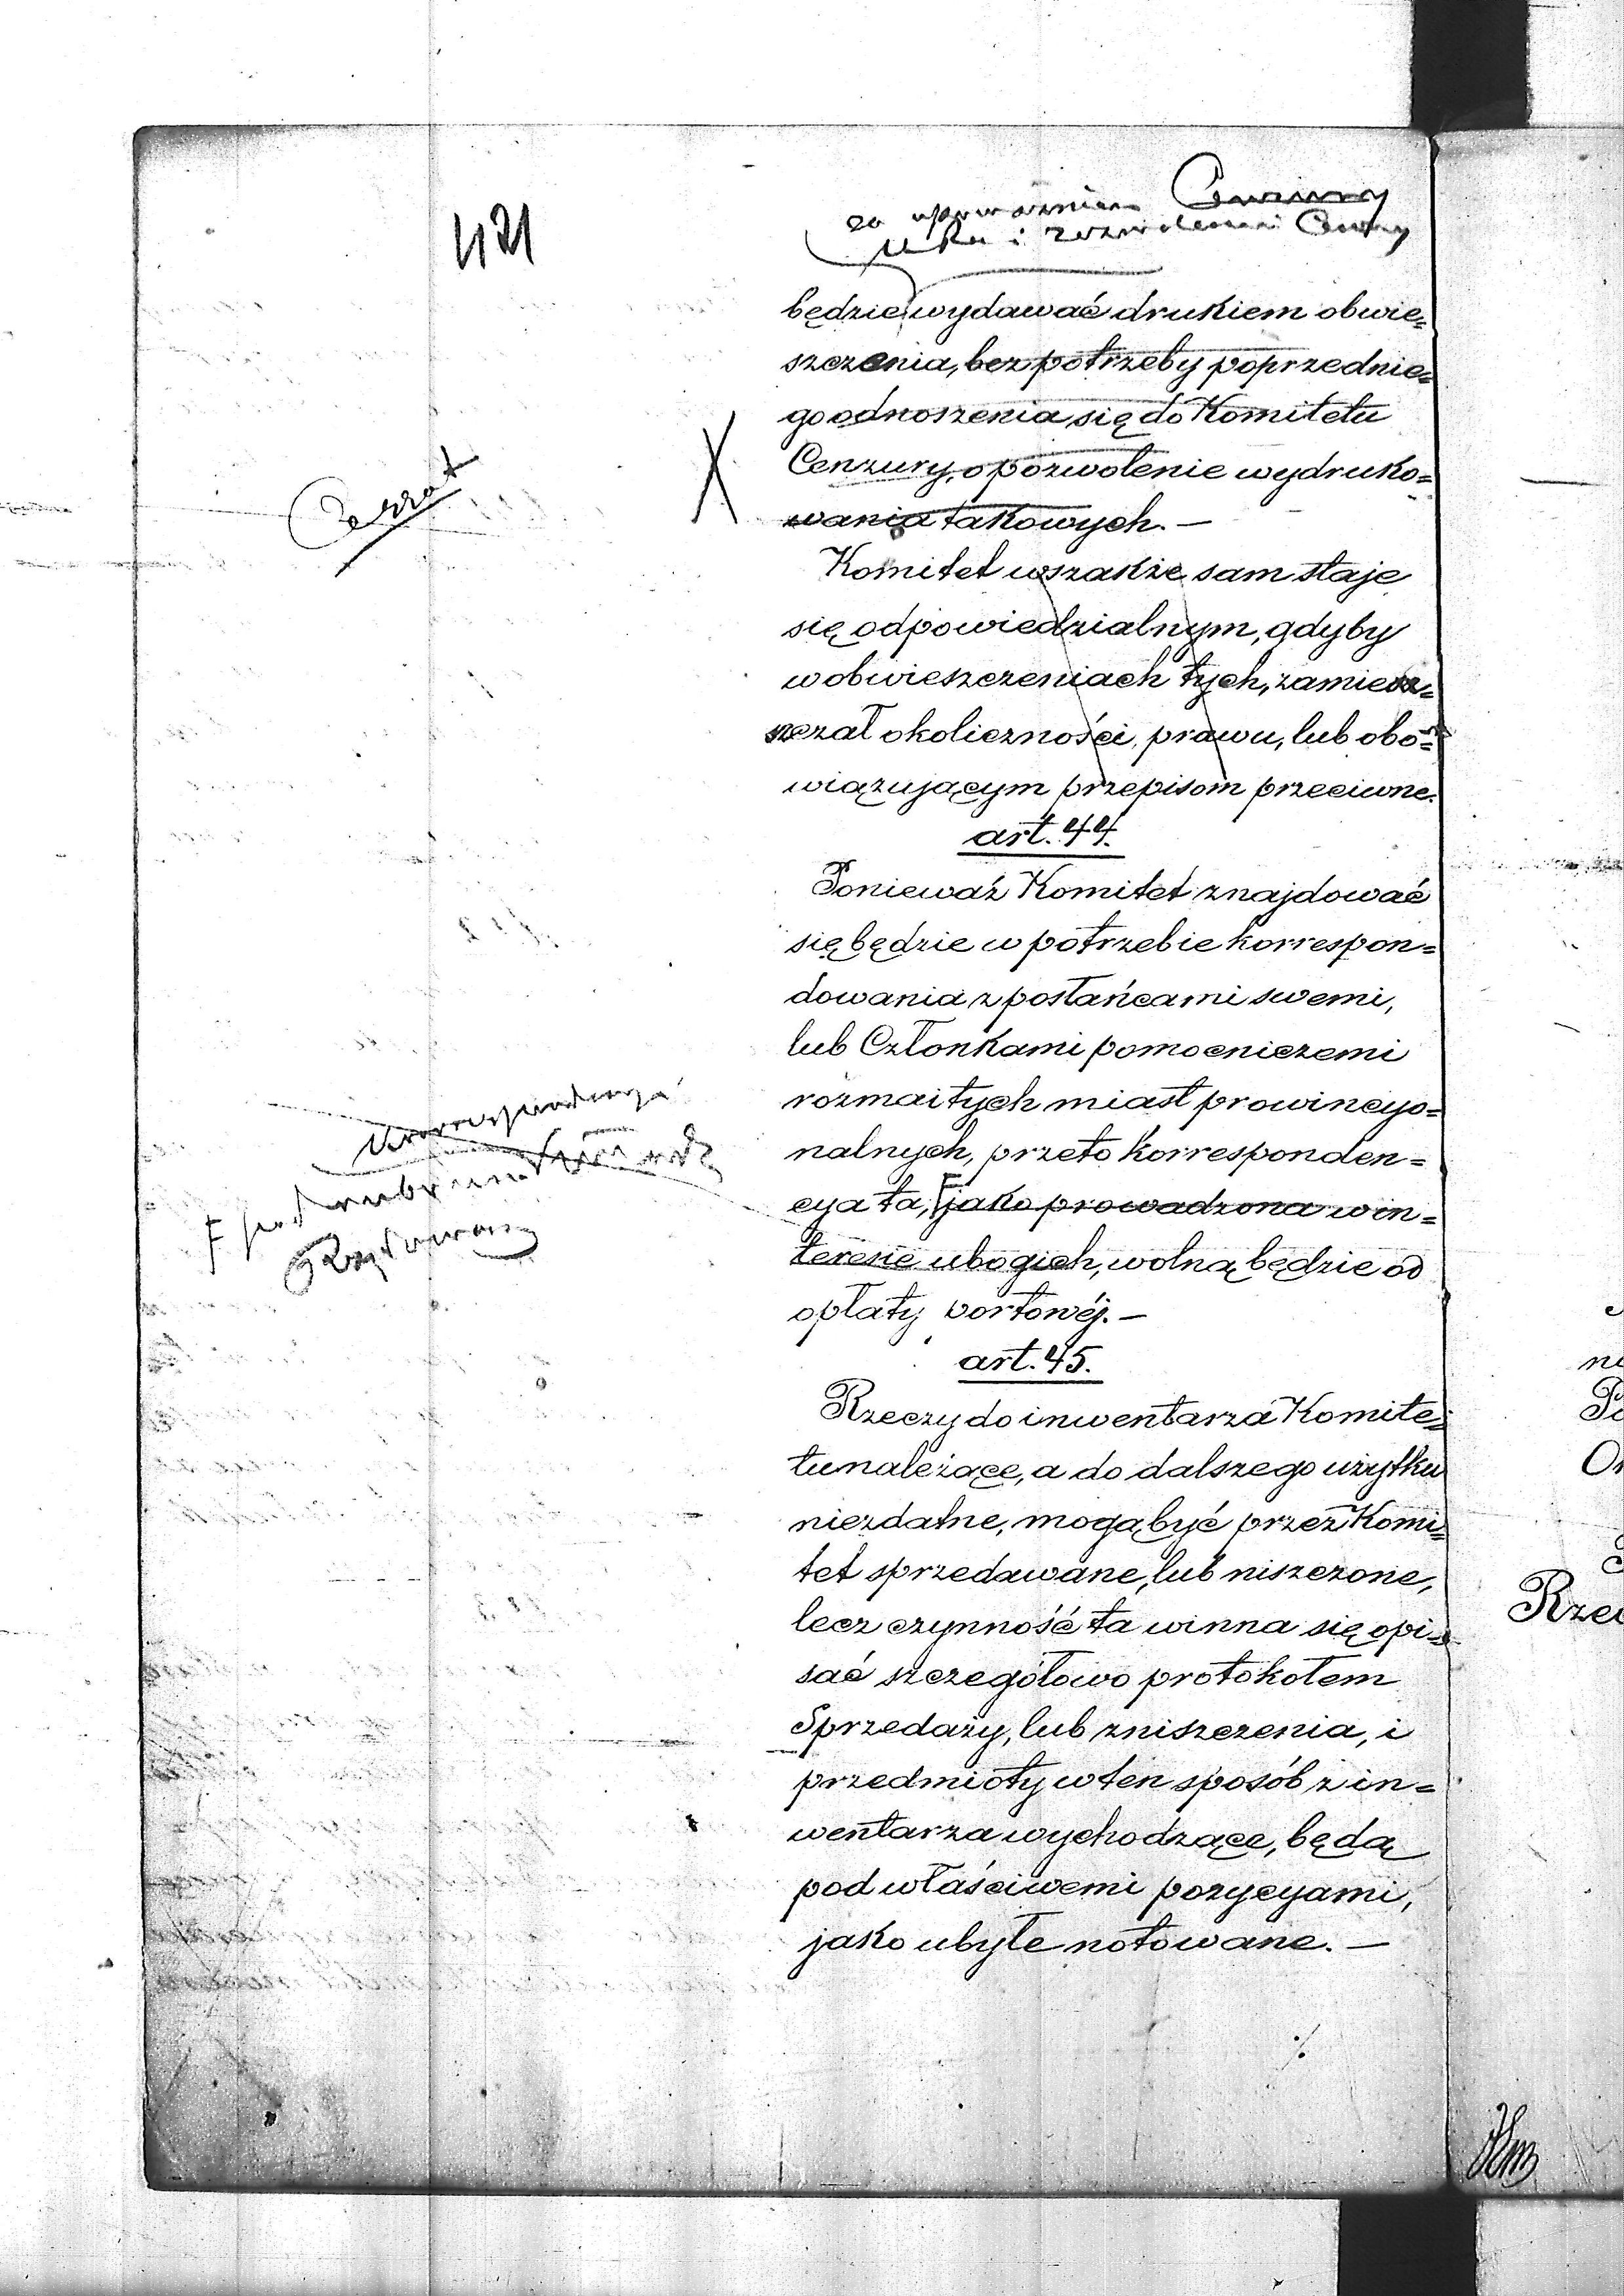 421
będzie wydawać drukiem obwie=
szczenia, bez potrzeby poprzednie=
go odnoszenia się do Komitetu
Cenzury, o pozwolenie wydruko=
wania takowych. —
Komitet wszakże sam staje
się odpowiedzialnym, gdyby
w obwieszczeniach tych, zamiesz=
szczał okoliczności, prawu, lub obo=
wiązującym przepisom przeciwne.
art. 44.
Ponieważ Komitet znajdować
się będzie w potrzebie korrespon=
dowania z posłańcami swemi,
lub Członkami pomocniczemi
rozmaitych miast prowincyo=
nalnych, przeto korresponden=
cya ta, jako prowadzona w in=
teresie ubogich, wolną będzie od
opłaty portowéj. —
art. 45.
Rzeczy do inwentarza Komite=
tu należące, a do dalszego użytku
niezdatne, mogą być przez Komi=
tet sprzedawane, lub niszczone,
lecz czynność ta winna się opi=
sać szczegółowo protokołem
Sprzedaży, lub zniszczenia, i
przedmioty w ten sposób z in=
wentarza wychodzące, będą
pod właściwemi pozycyami,
jako ubyłe notowane. —